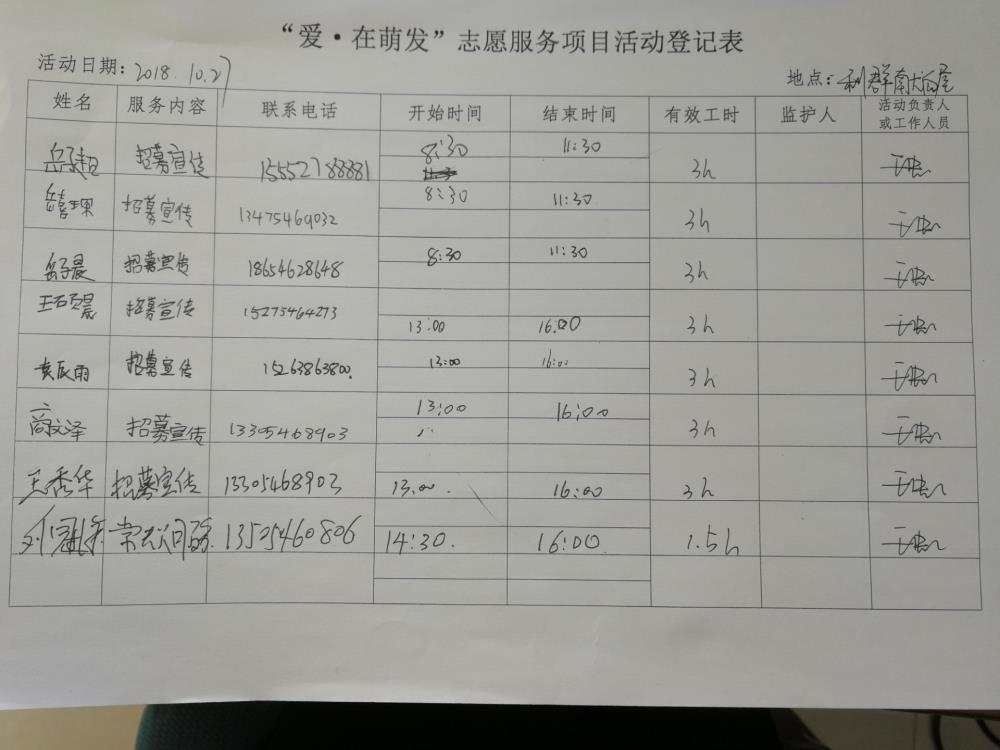 “爱·在萌发”志愿服务项目活动登记表
活动日期：2018.10.27 地点：利群南
姓名 服务内容 联系电话 开始时间 结束时间 有效工时 监护人 活动负责人或工作人员
招募宣传 15552788881 8:30 11:30 3h
招募宣传 13475469032 8:30 11:30 3h
招募宣传 18654628648 8:30 11:30 3h
招募宣传 15275464273 13:00 16:00 3h
袁辰雨 招募宣传 15263863800. 13:00 16:00 3h
商文泽 招募宣传 13305468903 13:00 16:00 3h
王秀华 招募宣传 13305468903 13.00. 16:00 3h
13525460806 14:30. 16:00 1.5h